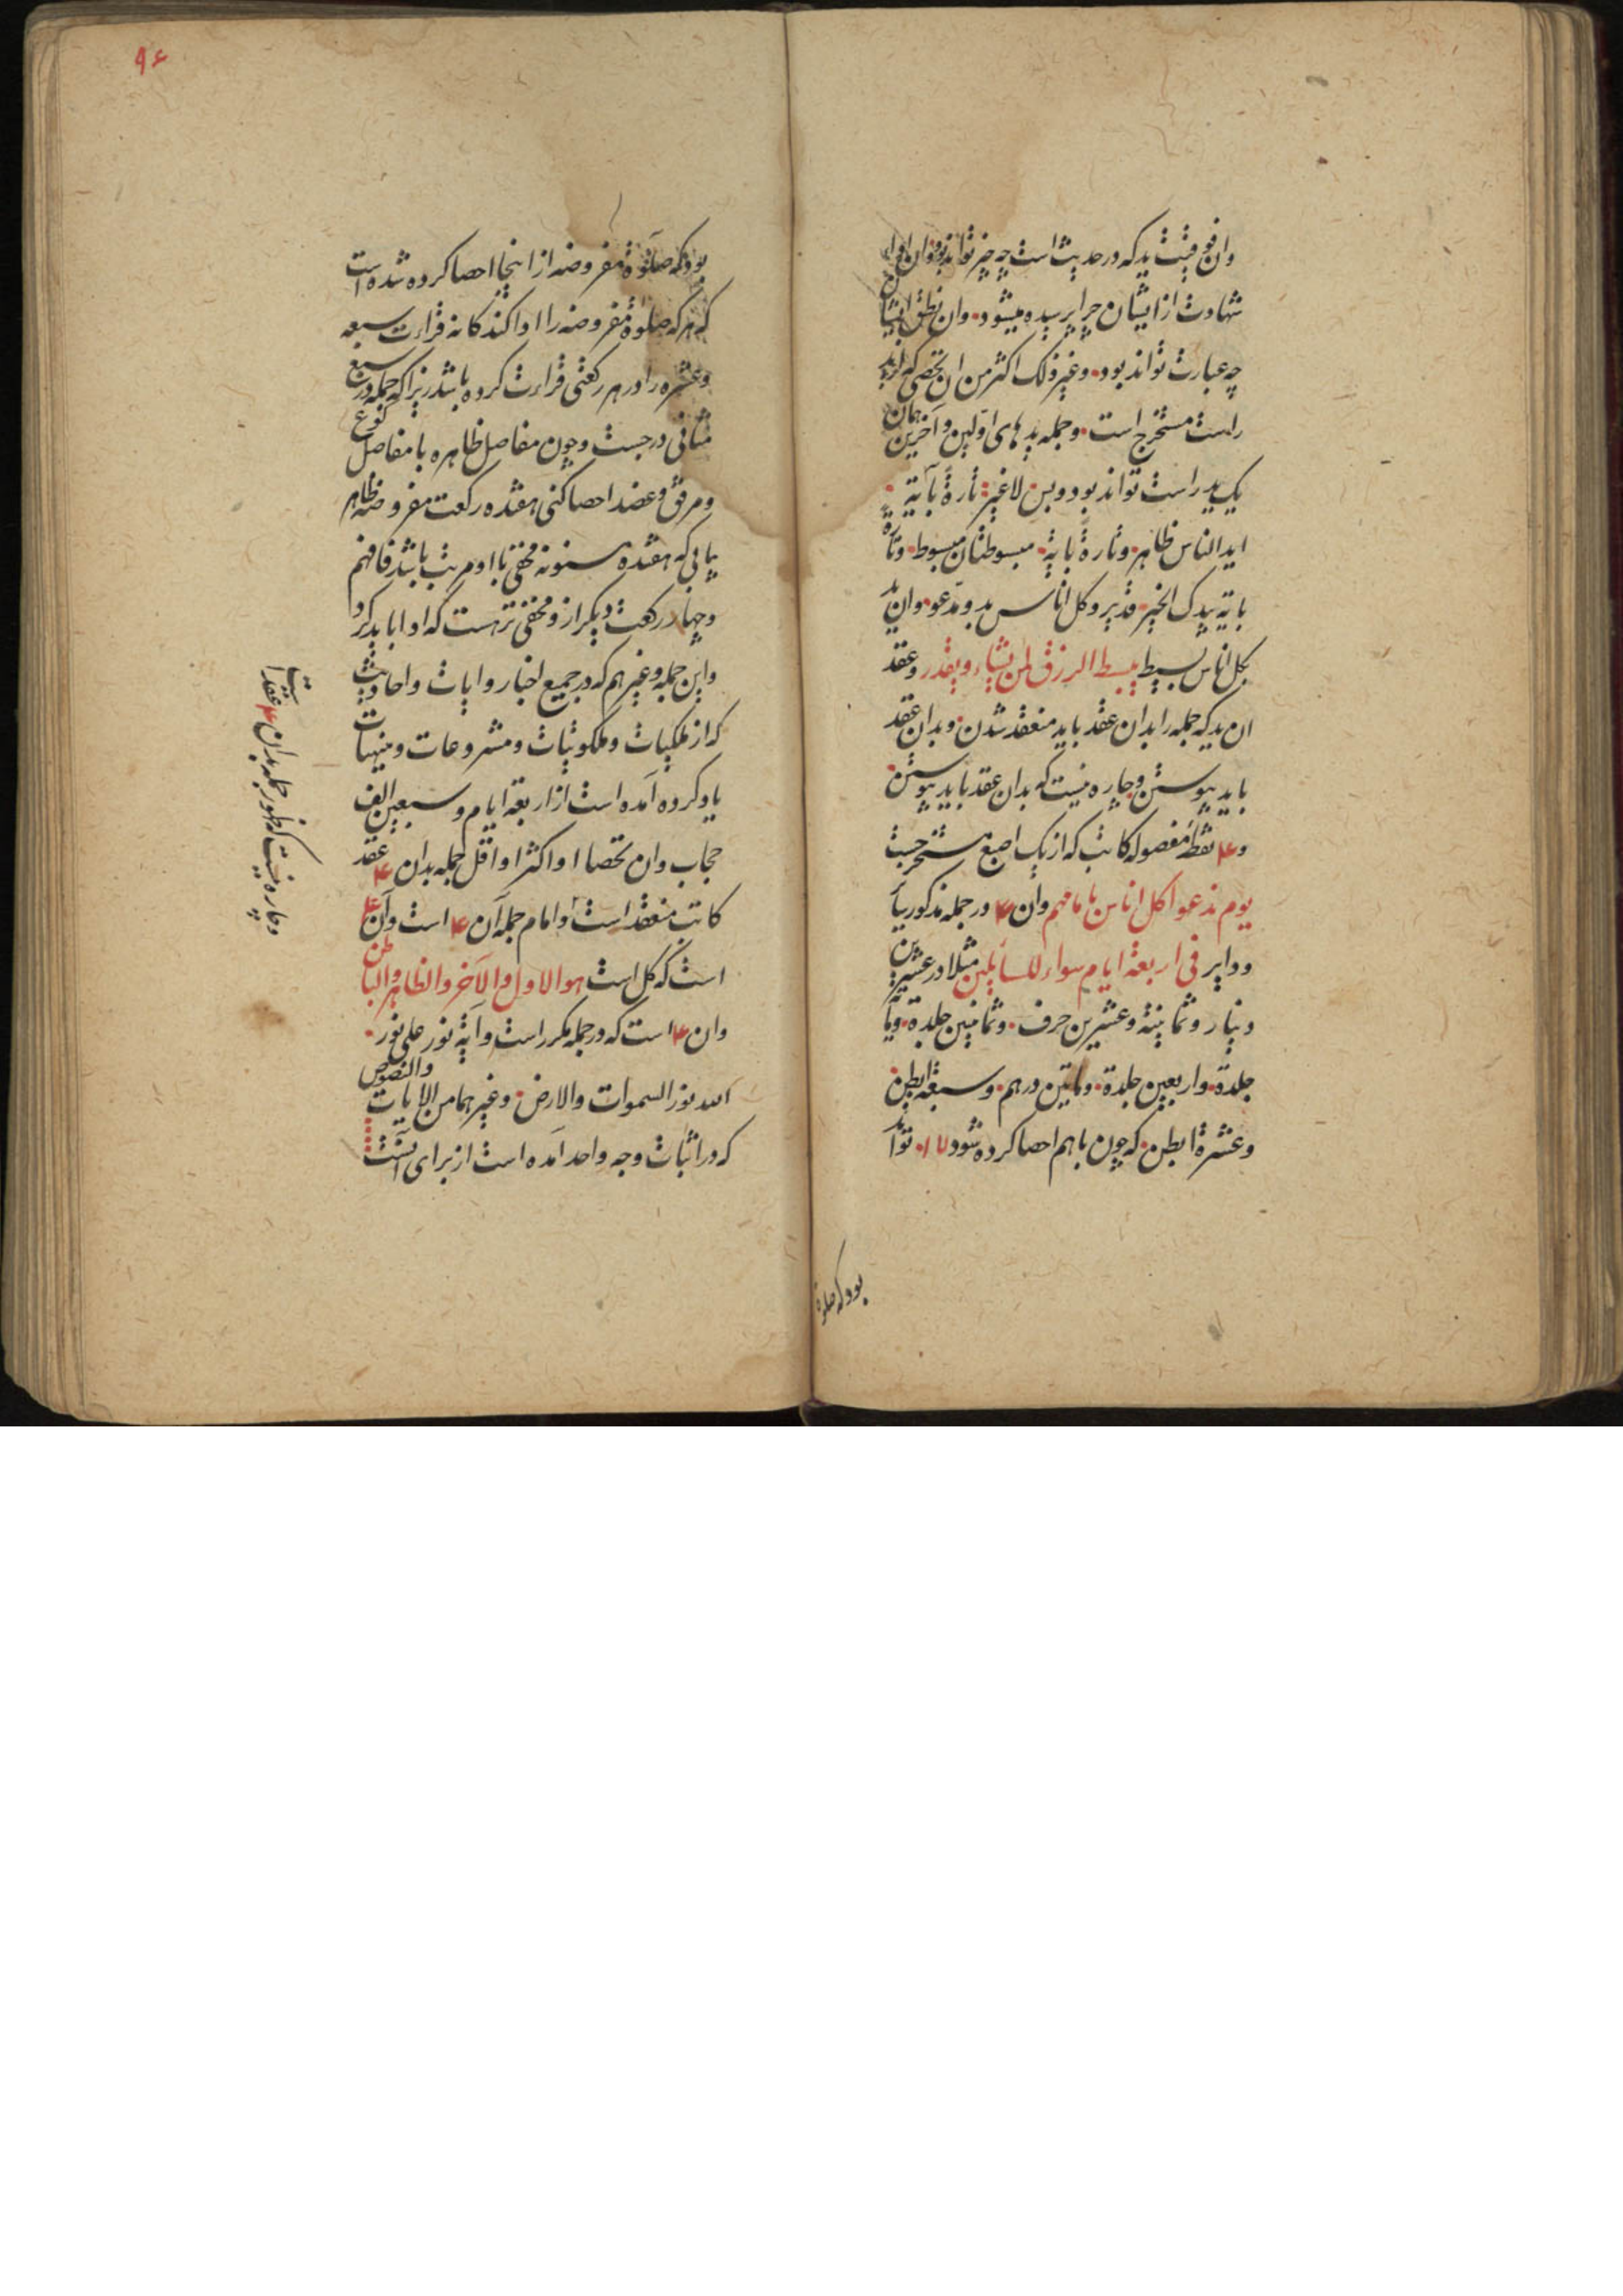 وان فوقیت ید که در حدیث است چه چیز تواند بود وان ادای
شهادت از ایشان چرا پرسیده میشود. وان نطق ایشان
چه عبارت تواند بود. وغیر ذلک اکثر من ان تحصی که از ید
راست مستخرج است. وجمله ید های اولین وآخرین همان
یک ید راست تواند بود وبس لاغیر: تارة بآیة.
اید الناس ظاهر. وتارة بایة. مبسوطتان مبسوط. وتارة
بایة بیدک الخیر. قدیر وکل اناس بدو مدعو. وان ید
بکل اناس بسیط یبسط الرزق لمن یشاء ویقدر وعقد
ان ید که جمله را بدان عقد باید منعقد شدن. وبدان عقد
باید پیوستن وچاره نیست که بدان عقد باید پیوستن.
و۴ نقطه مفصوله کاتب که از یک اصبع مستخرجست
یوم ندعوا کل اناس بامامهم وان ۴ در جمله مذکور بیا
ودایر فی اربعة ایام سواء للسایلین مثلا در عشرین
دینار وثمانیة وعشرین حرف. وثمانین جلدة. ومأ
جلدة. واربعین جلدة. وماتین درهم. وسبعة ابطن.
وعشرة ابطن. که چون باهم احصا کرده شود ۱۷. تواند
بود که صلوة
۹۶
بود که صلوة مفروضه از اینجا احصا کرده شده است
که هر که صلوة مفروضه را ادا کند کانه قراءت سبعه
وعشره را در هر رکعتی قراءت کرده باشد زیرا که جمله در سبع
مثانی درجست وچون مفاصل ظاهره با مفاصل کوع
ومرفق وعضد احصا کنی هفده رکعت مفروضه ظاهر
یابی که هفده مسنونه مخفی با او مرتب باشد فافهم
وچهار رکعت دیگر از و مخفی تر هست که ادا باید کرد
واین جمله وغیرهم که در جمیع اخبار وایات واحادیث
که از ملکیات وملکوتیات ومشروعات ومنهیات
یاد کرده آمده است از اربعة ایام وسبعین الف
حجاب وان تحصا او اکثر او اقل جمله بدان ۴ عقد
کاتب منعقد است وامام جمله آن ۴ است وآن ۴
است که کل است هو الاول والآخر والظاهر والباطن
وان ۴ است که در جمله مکرر است وآیة نور علی نور.
الله نور السموات والارض. وغیرهما من الایات والنصوص
که در اثبات وجه واحد آمده است از برای آنست
وچاره نیست که ظهور جمله بدان ۴ عقد است